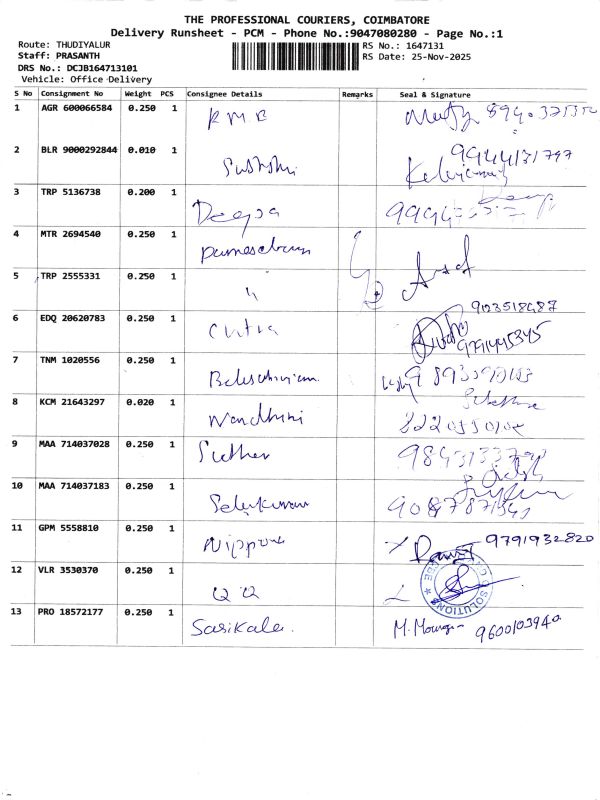 THE PROFESSIONAL COURIERS, COIMBATORE
Delivery Runsheet - PCM - Phone No.:9047080280 - Page No.:1
Route: THUDIYALUR
Staff: PRASANTH
DRS No.: DCJB164713101
Vehicle: Office Delivery
RS No.: 1647131
RS Date: 25-Nov-2025
S No Consignment No Weight PCS Consignee Details Remarks Seal & Signature
1 AGR 600066584 0.250 1 RMB
2 BLR 9000292844 0.010 1 9944131797
3 TRP 5136738 0.200 1 Deepa
4 MTR 2694540 0.250 1
5 TRP 2555331 0.250 1 "
903518487
6 EDQ 20620783 0.250 1 Chitra 9791445345
7 TNM 1020556 0.250 1
8 KCM 21643297 0.020 1 Nandhini
9 MAA 714037028 0.250 1
10 MAA 714037183 0.250 1 Selvakumar
11 GPM 5558810 0.250 1 Nippon 9791932820
12 VLR 3530370 0.250 1 SOLUTIONS
13 PRO 18572177 0.250 1 Sasikala. 9600103940